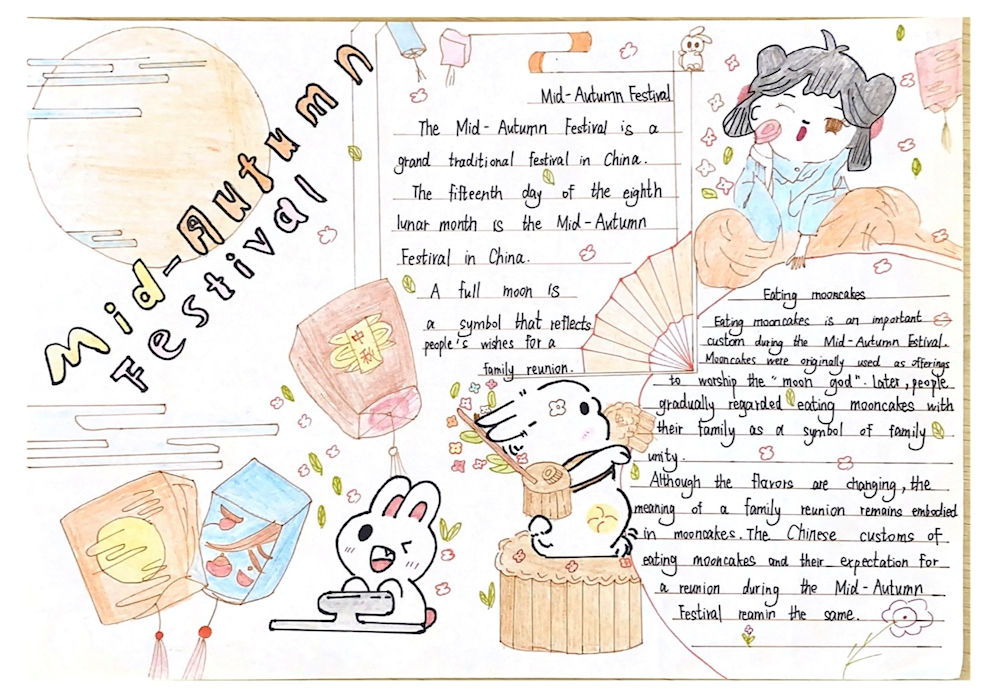 Mid-Autumn
Festival
Mid-Autumn Festival
The Mid-Autumn Festival is a
grand traditional festival in China.
The fifteenth day of the eighth
lunar month is the Mid-Autumn
Festival in China.
A full moon is
a symbol that reflects
people's wishes for a
family reunion.
中
秋
Eating mooncakes
Eating mooncakes is an important
custom during the Mid-Autumn Estival.
Mooncakes were originally used as offerings
to worship the "moon god". Later, people
gradually regarded eating mooncakes with
their family as a symbol of family
unity.
Although the flavors are changing, the
meaning of a family reunion remains embodied
in mooncakes. The Chinese customs of
eating mooncakes and their expectation for
a reunion during the Mid-Autumn
Festival reamin the same.